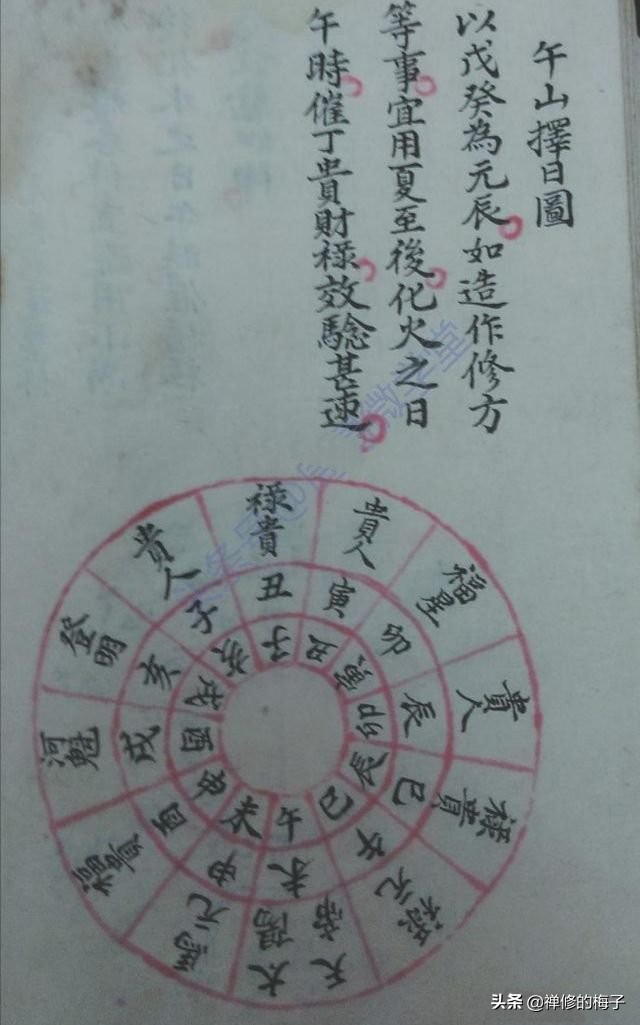 午山擇日圖
以戊癸為元辰如造作修方
等事宜用夏至後化火之日
午時催丁貴財祿效驗甚速
祿貴
貴人
福星
貴人
祿貴
祿元
太陽
馬元
河魁
登明
貴人
丑
寅
卯
辰
巳
午
未
申
酉
戌
亥
子
子
丑
寅
卯
辰
巳
午
未
申
酉
戌
亥
头条 @禅修的梅子